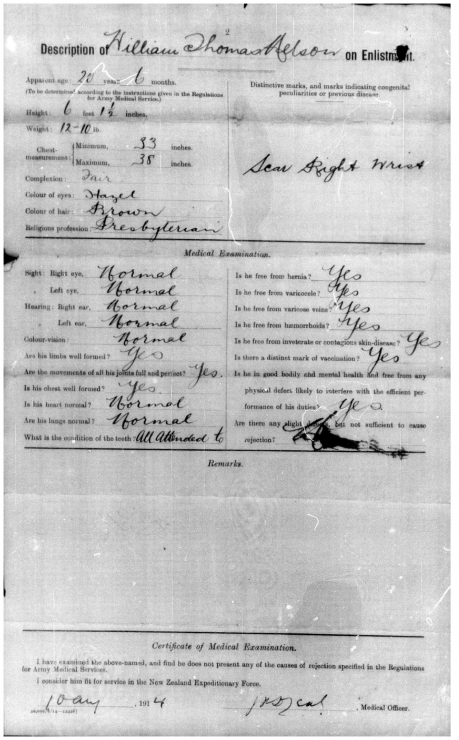 2
Description of William Thomas Nelson on Enlistment.
Apparent age: 20 years 6 months.
(To be determined according to the instructions given in the Regulations
for Army Medical Service.)
Height: 6 feet 1½ inches.
Weight: 12-10 lb.
Chest measurement: Minimum, 33 inches.
Maximum, 38 inches.
Complexion: Fair
Colour of eyes: Hazel
Colour of hair: Brown
Religious profession: Presbyterian
Distinctive marks, and marks indicating congenital
peculiarities or previous disease.
Scar Right Wrist
Medical Examination.
Sight: Right eye, Normal
" Left eye, Normal
Hearing: Right ear, Normal
" Left ear, Normal
Colour-vision: Normal
Are his limbs well formed? Yes
Are the movements of all his joints full and perfect? Yes.
Is his chest well formed? Yes.
Is his heart normal? Normal
Are his lungs normal? Normal
What is the condition of the teeth: All Attended to
Is he free from hernia? Yes
Is he free from varicocele? Yes
Is he free from varicose veins? Yes
Is he free from hæmorrhoids? Yes
Is he free from inveterate or contagious skin-disease? Yes
Is there a distinct mark of vaccination? Yes
Is he in good bodily and mental health and free from any
physical defect likely to interfere with the efficient per-
formance of his duties? Yes.
Are there any slight defects, but not sufficient to cause
rejection?
Remarks.
Certificate of Medical Examination.
I have examined the above-named, and find he does not present any of the causes of rejection specified in the Regulations
for Army Medical Services.
I consider him fit for service in the New Zealand Expeditionary Force.
10 Aug, 1914 , Medical Officer.